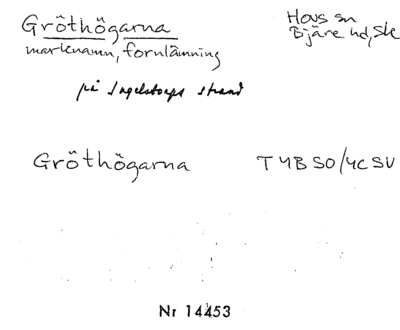 Gröthögarna
Hovs sn
Bjäre hd, Sk
marknamn, fornlämning
på Ingelstorps strand
Gröthögarna
T 4B SO/4C SV
Nr 14453